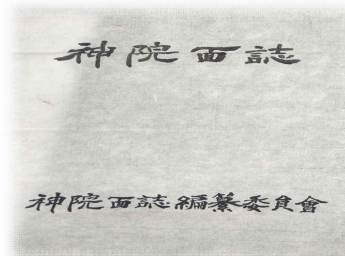 神院面誌
神院面誌編纂委員會